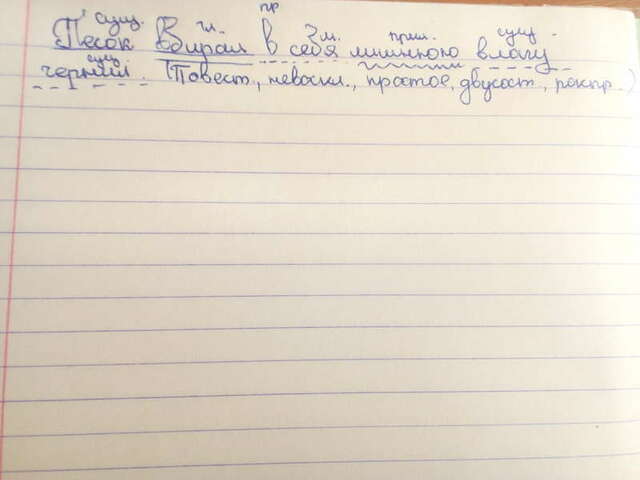 сущ. гл. пр м. прил. сущ.
Песок вбирал в себя лишнюю влагу
сущ.
чернил. (Повест., невоскл., простое, двусост., распр.)